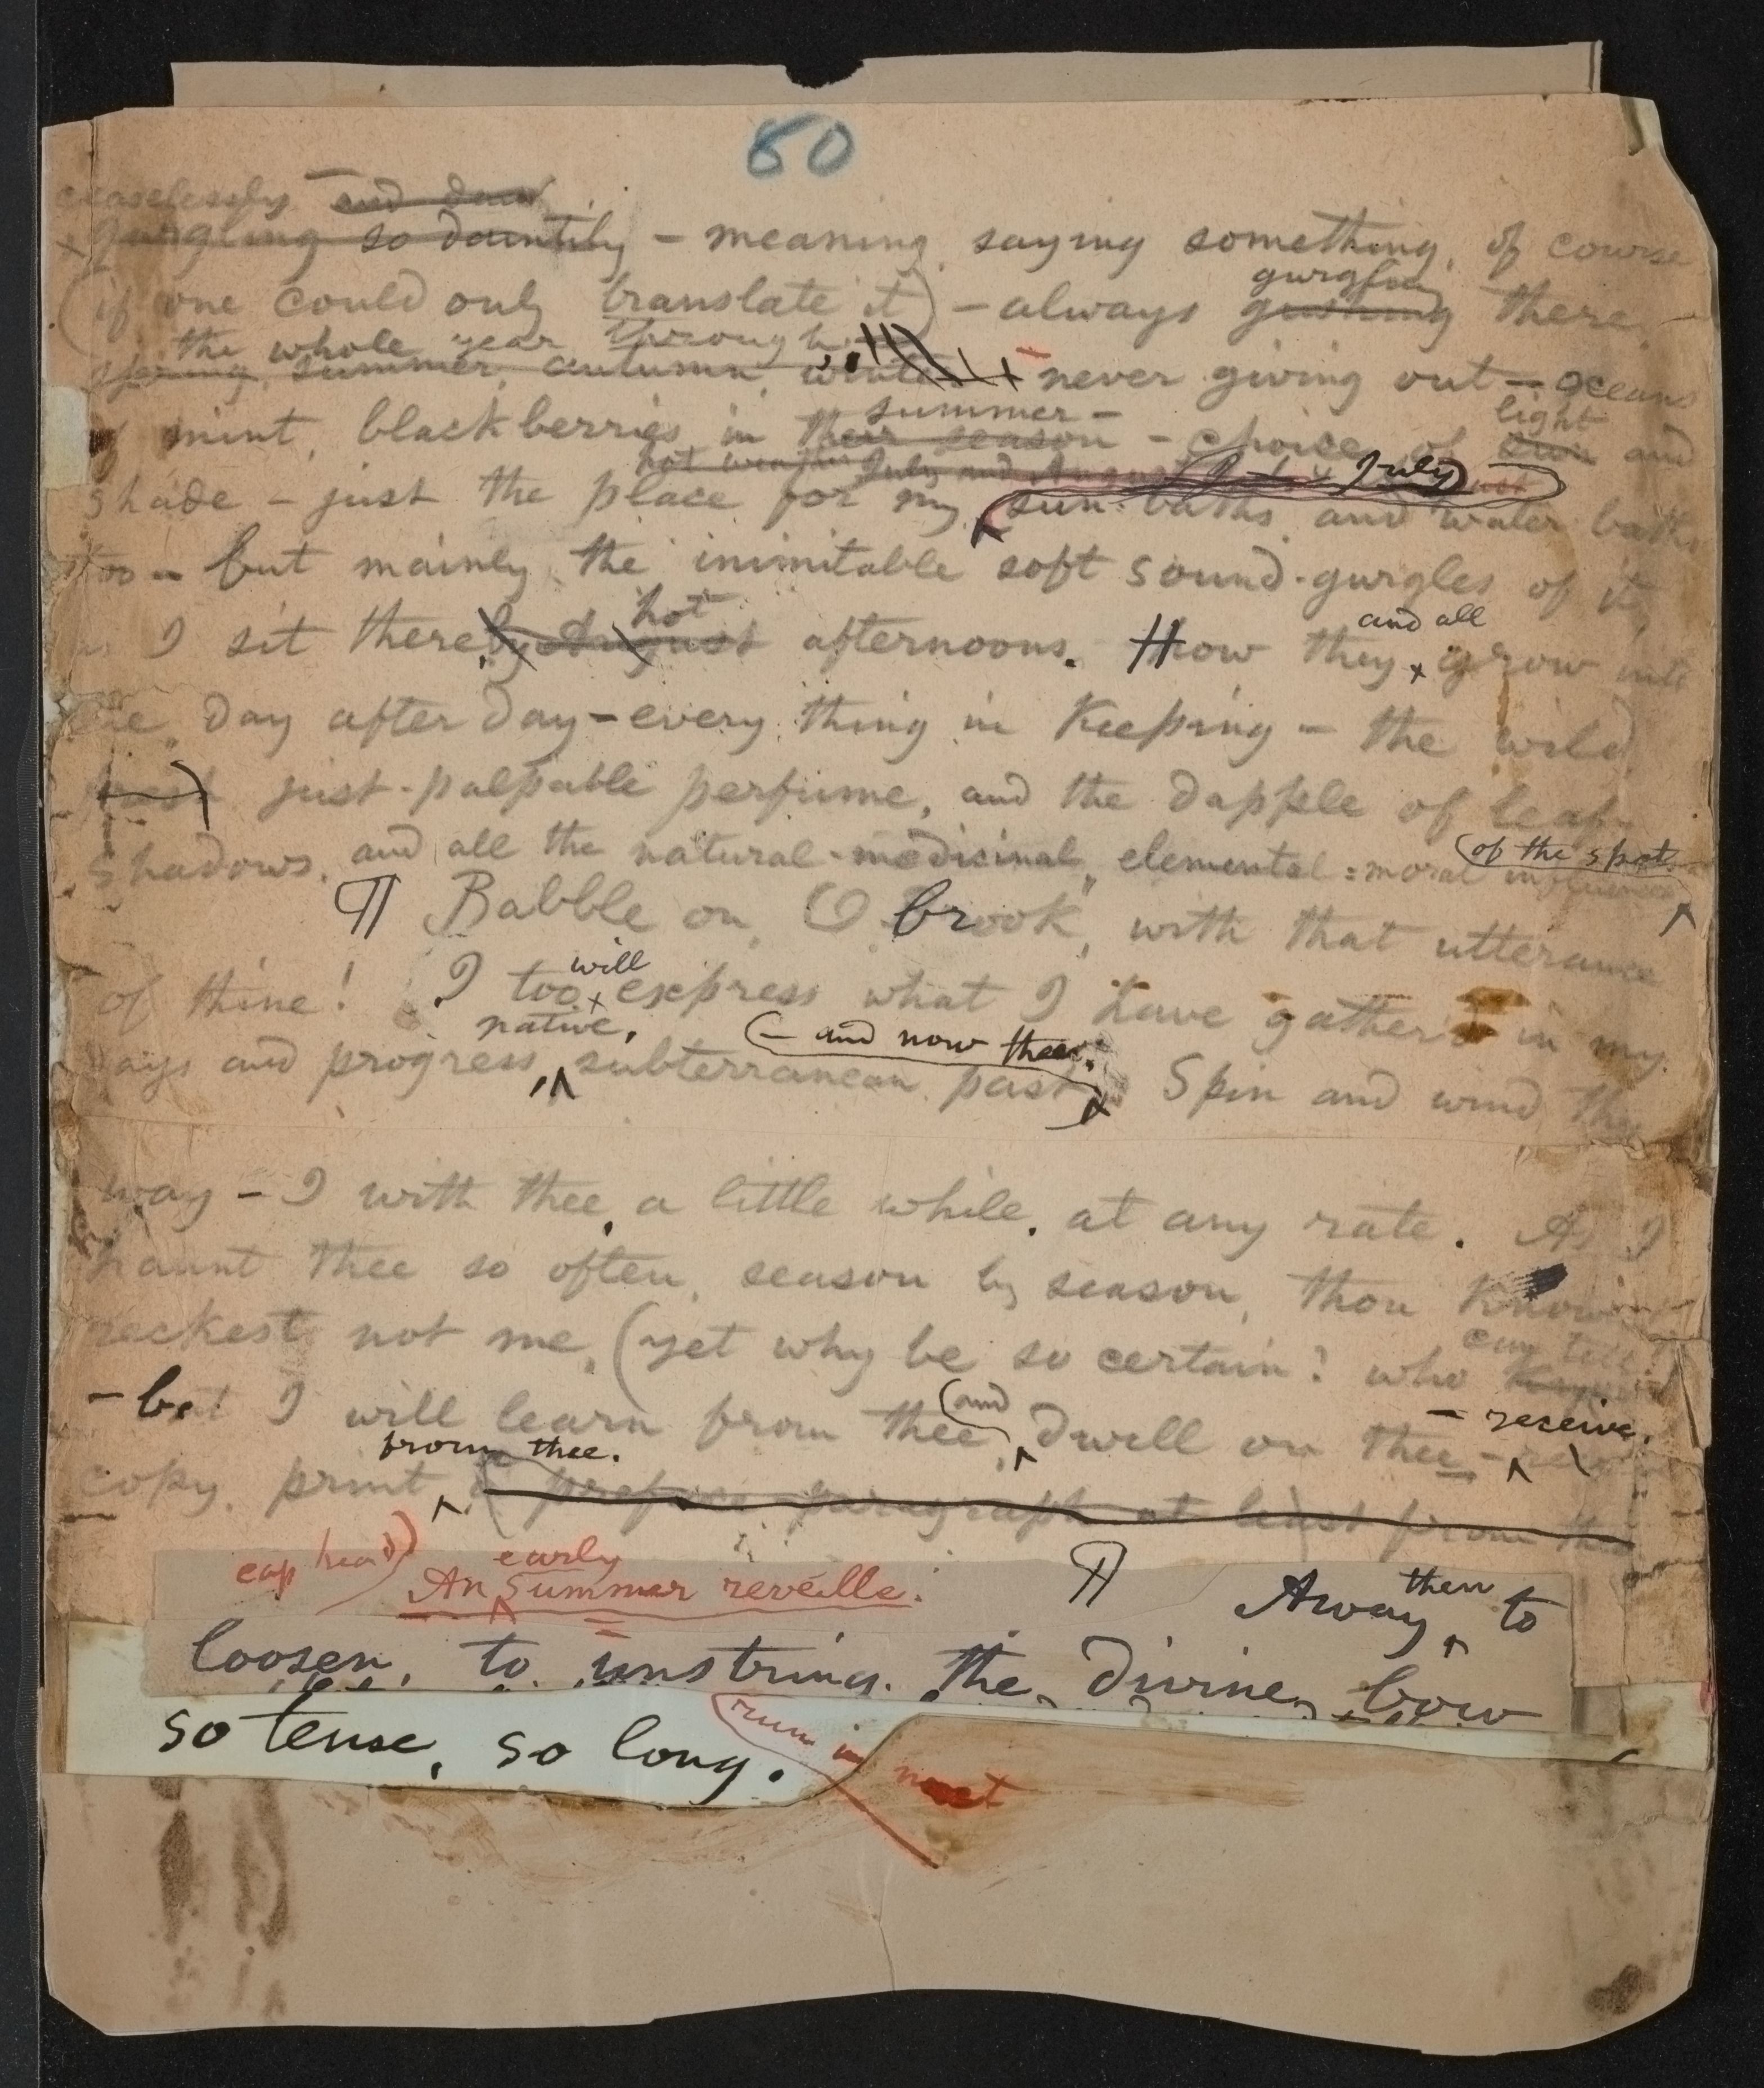 80
ceaselessly and
gurgling so daintily – meaning, saying something, of course
gurgling
(if one could only translate it) – always gushing there,
the whole year through
spring, summer, autumn, never giving out – oceans
summer – light
mint, blackberries in their season – choice of sun and
hot weather July and August July
shade – just the place for my sun-baths and water baths
too – but mainly the inimitable soft sound-gurgles of it,
hot and all
as I sit there by August afternoons. How they grow into
me, day after day – every thing in keeping – the wild,
just-palpable perfume, and the dapple of leaf-
of the spot
shadows, and all the natural-medicinal, elemental-moral influences
¶ Babble on, O brook, with that utterance
will
of thine! I too express what I have gather'd in my
native, – and now thee.
days and progress, subterranean, past Spin and wind thy
way – I with thee, a little while, at any rate. As I
haunt thee so often, season by season, thou
can tell?
reckest not me, (yet why be so certain? who
and – receive,
– but I will learn from thee, dwell on thee –
from thee.
copy, print a preface paragraph at least from
cap head) An early Summer reveille. ¶ Away then to
loosen, to unstring the divine bow
so tense, so long.
run in next